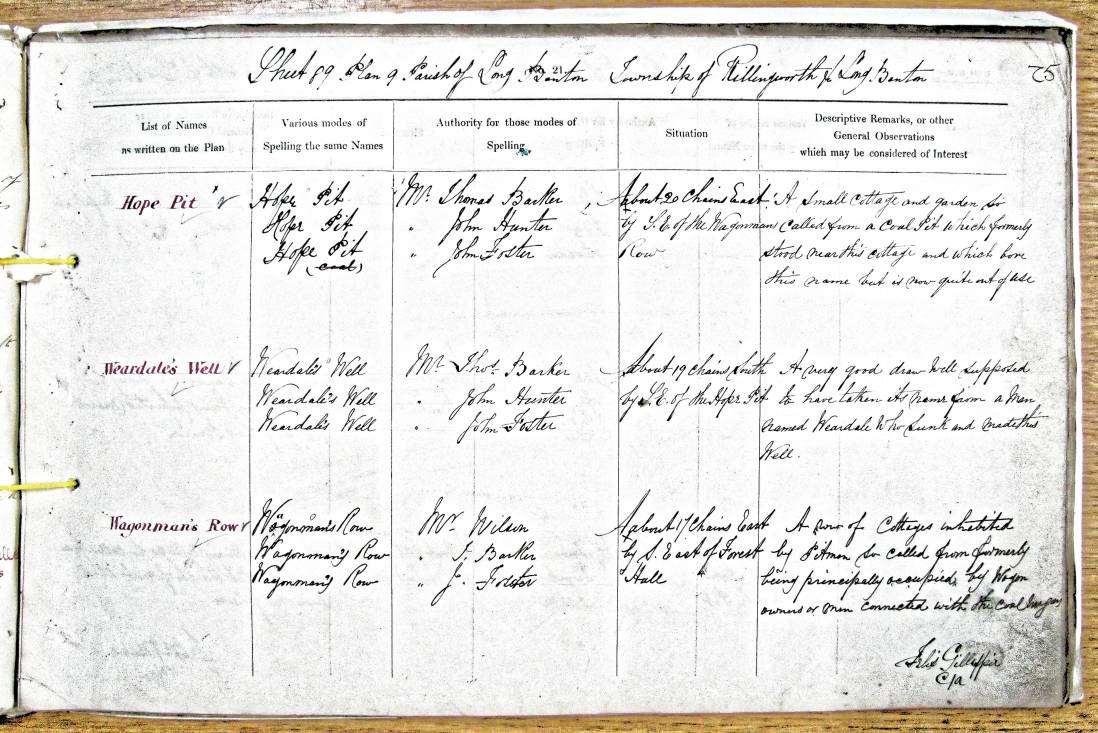 Sheet 89 Plan 9 Parish of Long Benton Township of Killingworth & Long Benton
No. 21
75
List of Names
as written on the Plan
Various modes of
Spelling the same Names
Authority for those modes of
Spelling
Situation
Descriptive Remarks, or other
General Observations
which may be considered of Interest
Hope Pit
Hope Pit
Hope Pit
Hope Pit
(coal)
Mr. Thomas Barker
" John Hunter
" John Foster
About 20 Chains East
by S.E. of the Wagonmans
Row
A small Cottage and garden so
called from a Coal Pit which formerly
stood near this cottage and which bore
this name but is now quite out of use
Weardale's Well
Weardale's Well
Weardale's Well
Weardale's Well
Mr. Thos. Barker
" John Hunter
" John Foster
About 19 chains South
by S.E. of the Hope Pit
A very good draw Well supposed
to have taken its name from a Man
named Weardale Who sunk and made this
Well.
Wagonman's Row
Wagonman's Row
Wagonman's Row
Wagonman's Row
Mr. Wilson
" T. Barker
" J. Foster
About 17 Chains East
by S. East of Forest
Hall
A row of Cottages inhabited
by Pitmen so called from formerly
being principally occupied by Wagon
owners or men connected with the coal
Felix Gillespie
C/a